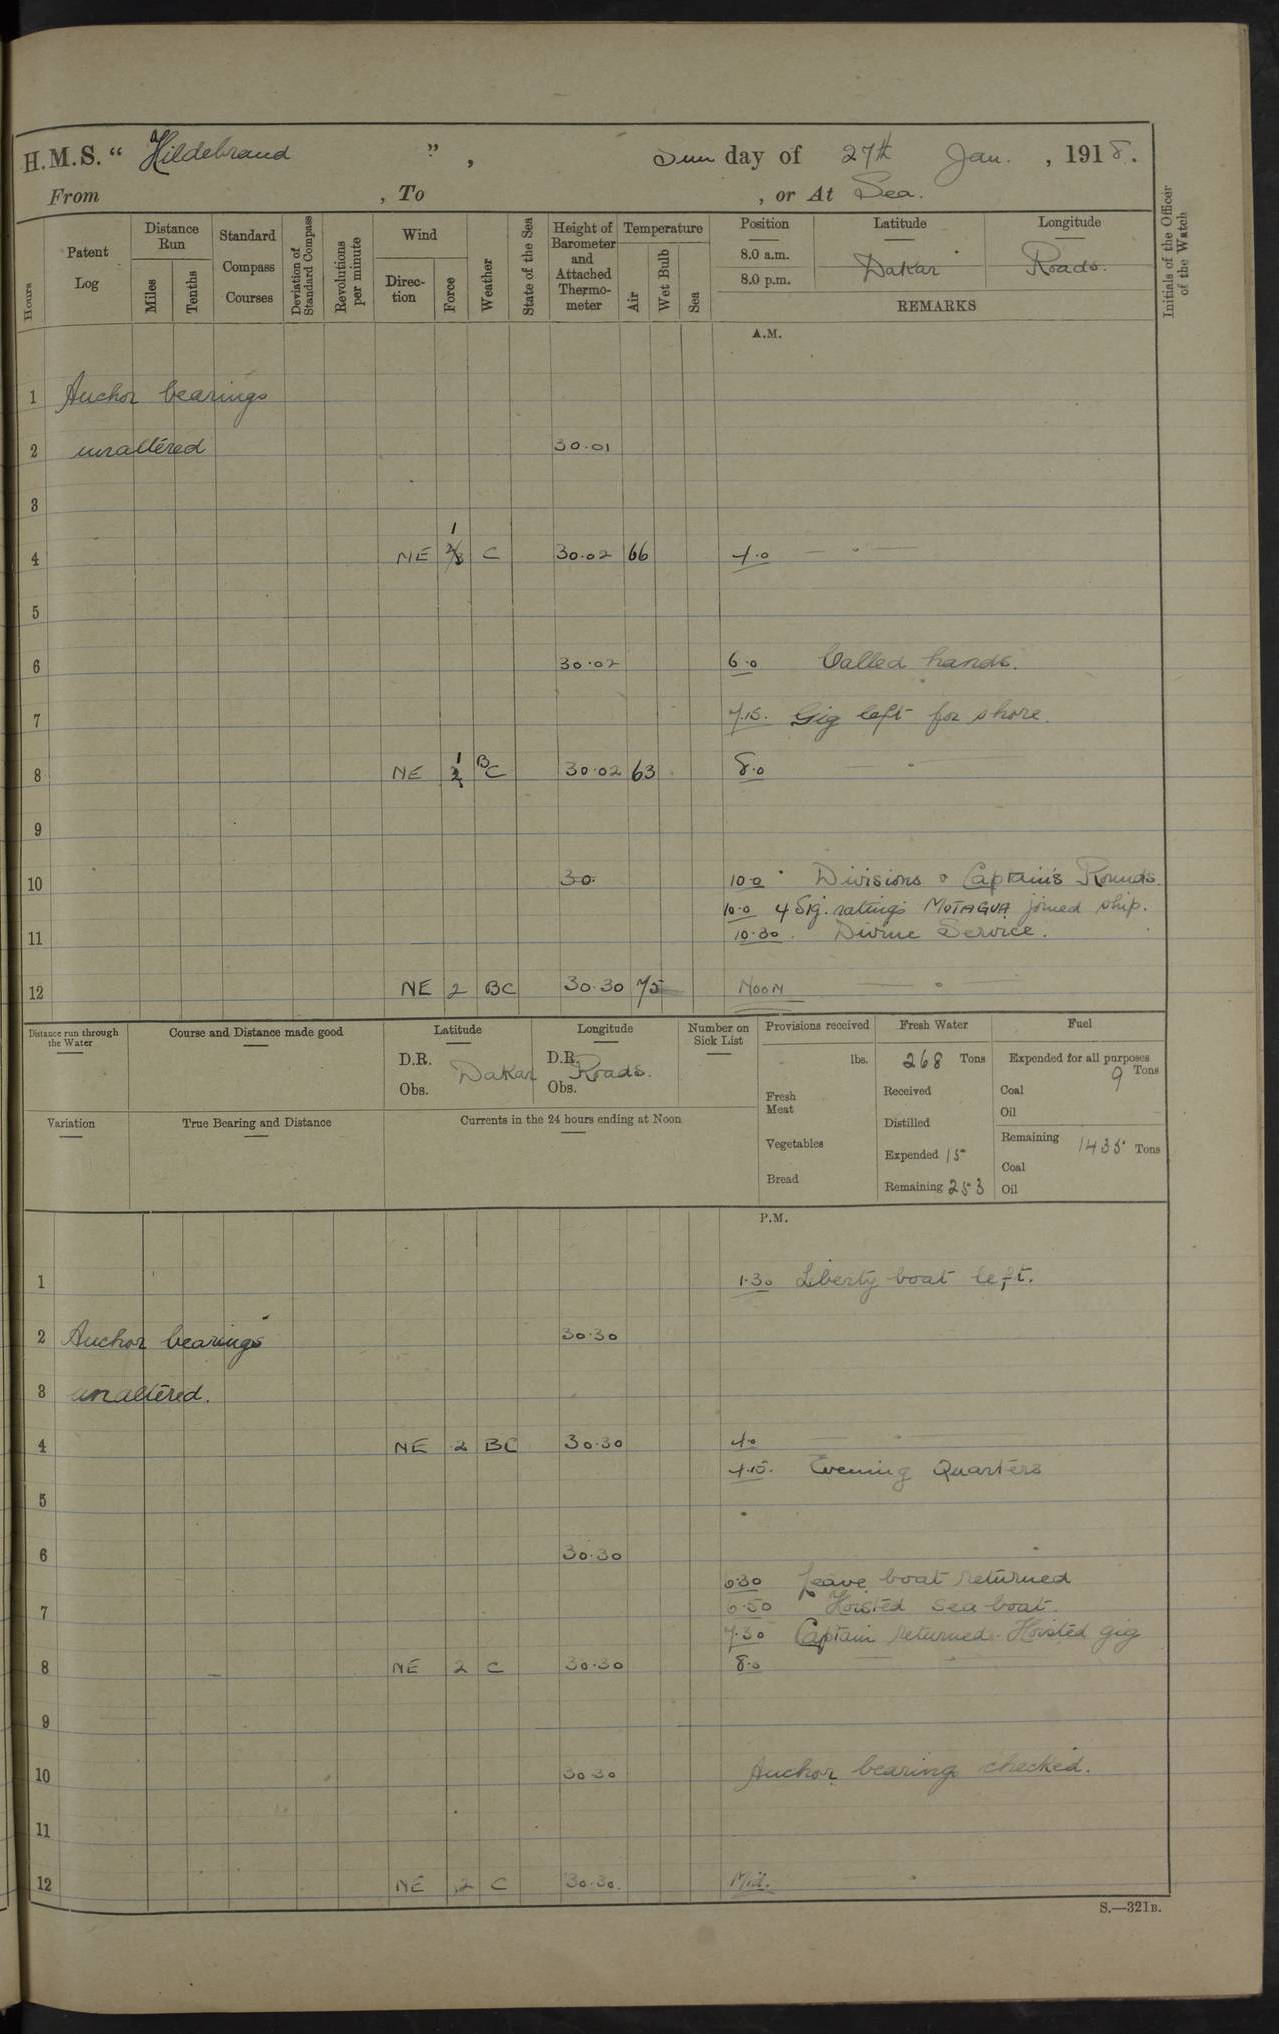 H.M.S. “ Hildebrand ” , Sun day of 27th Jan. , 1918.
From , To , or At Sea.
Hours
Patent Log
Distance Run
Miles
Tenths
Standard Compass Courses
Deviation of Standard Compass
Revolutions per minute
Wind
Direction
Force
Weather
State of the Sea
Height of Barometer and Attached Thermometer
Temperature
Air
Wet Bulb
Sea
Position Latitude Longitude
8.0 a.m.
8.0 p.m. Dakar Roads.
REMARKS
Initials of the Officer of the Watch
A.M.
1 Anchor bearings
2 unaltered 30.01
3
4 NE 1 C 30.02 66 4.0
5
6 30.02 6.0 Called hands.
7 7.15. Gig left for shore.
8 NE 1 BC 30.02 63 8.0
9
10 30. 10.0 Divisions & Captain's Rounds.
10.0 4 Sig. ratings MOTAGUA joined ship.
11 10.30. Divine Service.
12 NE 2 BC 30.30 75 Noon
Distance run through the Water
Course and Distance made good
Latitude
D.R.
Obs.
Longitude
D.R.
Obs.
Dakar Roads.
Number on Sick List
Provisions received
lbs.
Fresh Meat
Vegetables
Bread
Fresh Water
268 Tons
Received
Distilled
Expended 15
Remaining 253
Fuel
Expended for all purposes
9 Tons
Coal
Oil
Remaining 1435 Tons
Coal
Oil
Variation
True Bearing and Distance
Currents in the 24 hours ending at Noon
P.M.
1 1.30 Liberty boat left.
2 Anchor bearings 30.30
3 unaltered.
4 NE 2 BC 30.30 4.0
4.15. Evening Quarters
5
6 30.30
6.30 Leave boat returned
7 6.50 Hoisted sea-boat.
7.30 Captain returned. Hoisted gig
8 NE 2 C 30.30 8.0
9
10 30.30 Anchor bearing checked.
11
12 NE 2 C 30.30. Mid.
S.—321B.